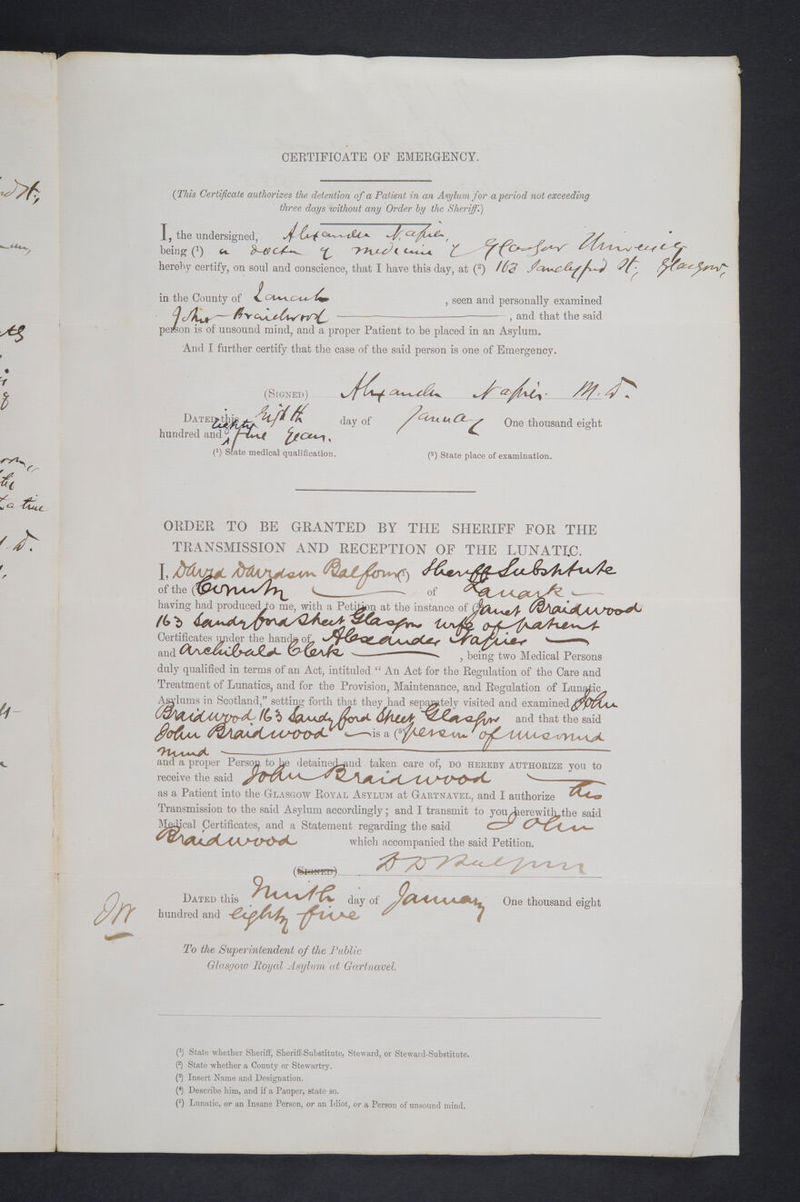 CERTIFICATE OF EMERGENCY.
(This Certificate authorizes the detention of a Patient in an Asylum for a period not exceeding
three days without any Order by the Sheriff.)
I, the undersigned, Alexander Napier,
being (¹) a Doctor of Medicine of Glasgow University
hereby certify, on soul and conscience, that I have this day, at (²) 163 Sandyford St, Glasgow,
in the County of Lanark , seen and personally examined
John Braidwood , and that the said
person is of unsound mind, and a proper Patient to be placed in an Asylum.
And I further certify that the case of the said person is one of Emergency.
(SIGNED) Alexander Napier. M.D.
DATED this Eighth day of January One thousand eight
hundred and eighty five years.
(¹) State medical qualification. (²) State place of examination.
ORDER TO BE GRANTED BY THE SHERIFF FOR THE
TRANSMISSION AND RECEPTION OF THE LUNATIC.
I, David Davidson Balfour (¹) Sheriff Substitute
of the (²) County of Lanark
having had produced to me, with a Petition at the instance of (³) Janet Braidwood
163 Sandyford Street Glasgow wife of patient
Certificates under the hands of Alexander Napier
and Archibald Clerk , being two Medical Persons
duly qualified in terms of an Act, intituled “ An Act for the Regulation of the Care and
Treatment of Lunatics, and for the Provision, Maintenance, and Regulation of Lunatic
Asylums in Scotland,” setting forth that they had separately visited and examined (⁴) John
Braidwood 163 Sandyford Street Glasgow and that the said
John Braidwood is a (⁵) person of unsound
mind
and a proper Person to be detained and taken care of, DO HEREBY AUTHORIZE you to
receive the said John Braidwood
as a Patient into the GLASGOW ROYAL ASYLUM at GARTNAVEL, and I authorize his
Transmission to the said Asylum accordingly; and I transmit to you herewith the said
Medical Certificates, and a Statement regarding the said John
Braidwood which accompanied the said Petition.
(SIGNED) D D Balfour
DATED this Ninth day of January One thousand eight
hundred and eighty five
To the Superintendent of the Public
Glasgow Royal Asylum at Gartnavel.
(¹) State whether Sheriff, Sheriff-Substitute, Steward, or Steward-Substitute.
(²) State whether a County or Stewartry.
(³) Insert Name and Designation.
(⁴) Describe him, and if a Pauper, state so.
(⁵) Lunatic, or an Insane Person, or an Idiot, or a Person of unsound mind.